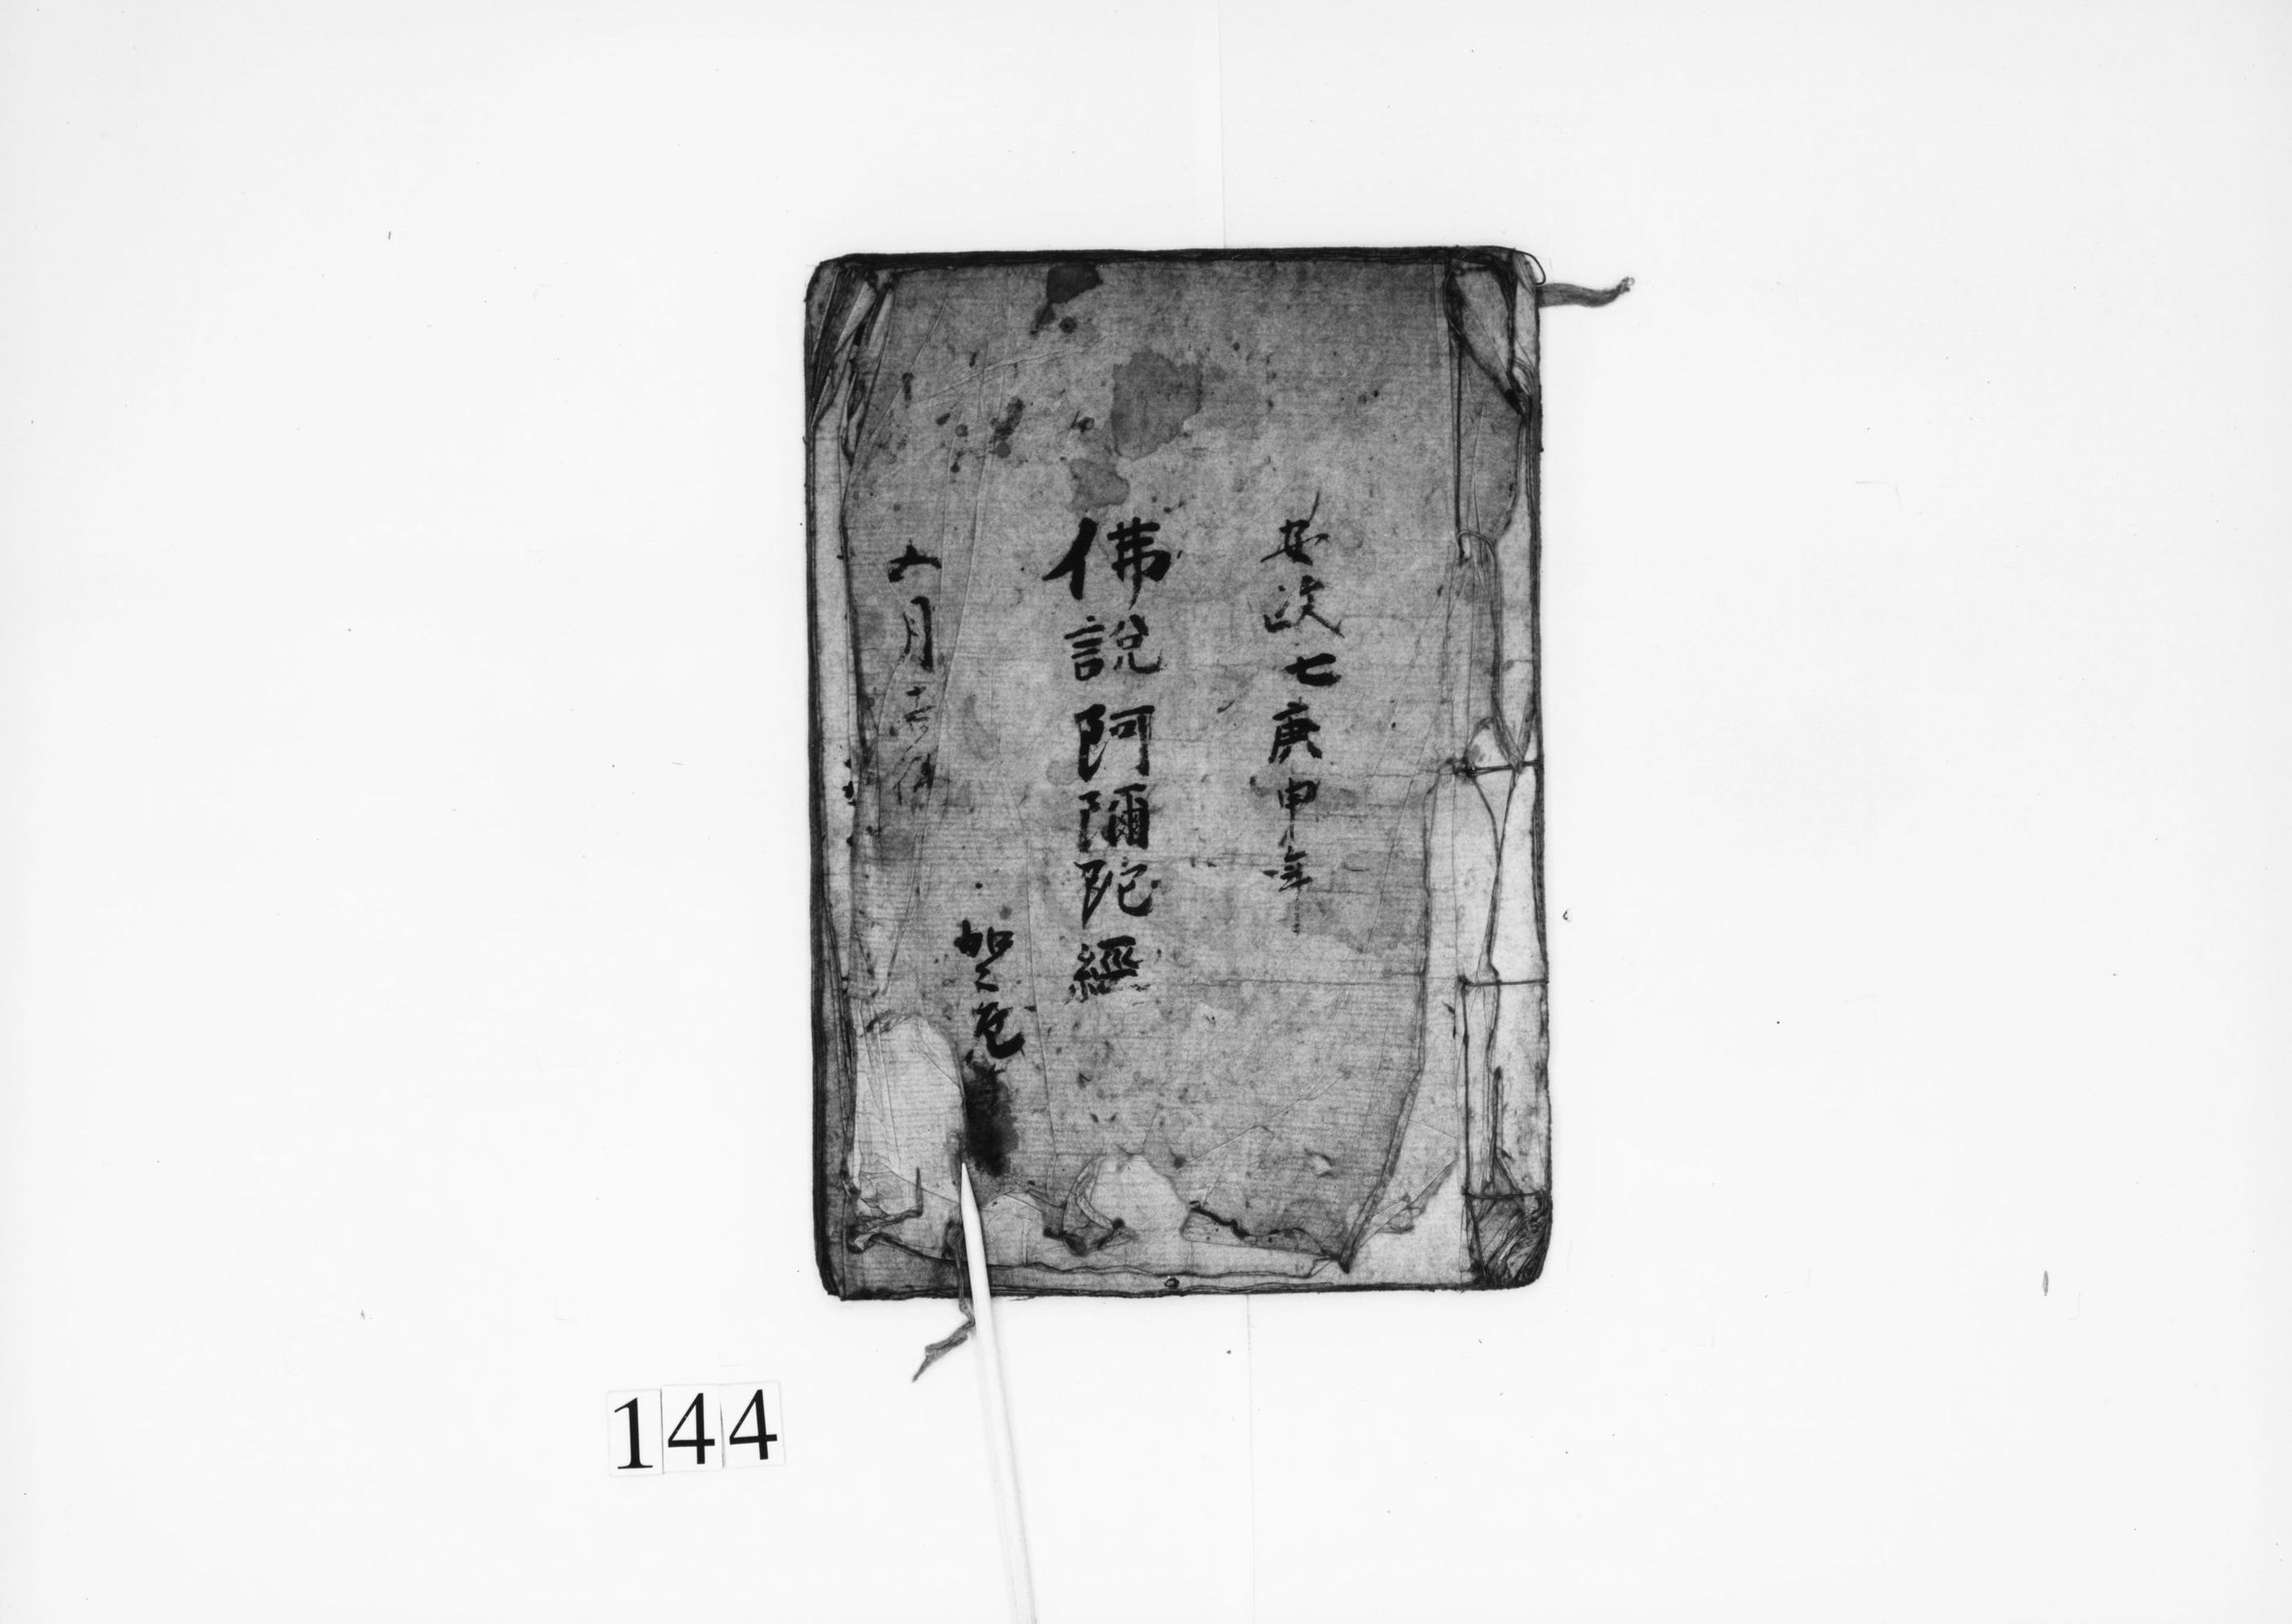 安政七庚申年
佛説阿彌陀經
六月吉
144